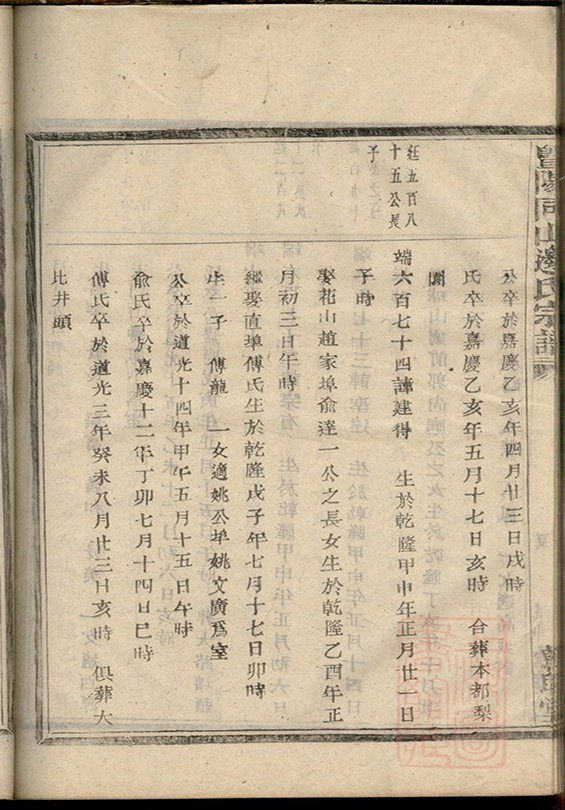 暨陽同山邊氏宗譜
公卒於嘉慶乙亥年四月廿三日戌時
氏卒於嘉慶乙亥年五月十七日亥時 合葬本都梨
園
廷五百八
十五公長
子
端六百七十四諱建得 生於乾隆甲申年正月廿一日
子時
娶花山趙家埠俞達一公之長女生於乾隆乙酉年正
月初三日午時
繼娶直埠傅氏生於乾隆戊子年七月十七日卯時
生一子 傅龍 一女適姚公埠姚文廣爲室
公卒於道光十四年甲午五月十五日午時
俞氏卒於嘉慶十二年丁卯七月十四日巳時
傅氏卒於道光三年癸未八月廿三日亥時 俱葬大
比井頭